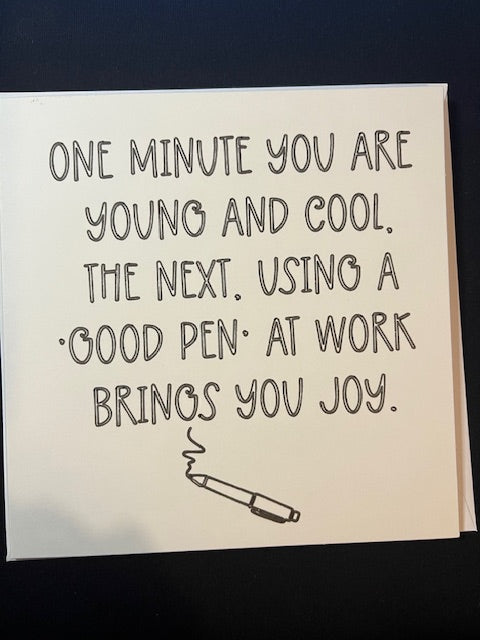 ONE MINUTE YOU ARE
YOUNG AND COOL.
THE NEXT. USING A
·GOOD PEN· AT WORK
BRINGS YOU JOY.